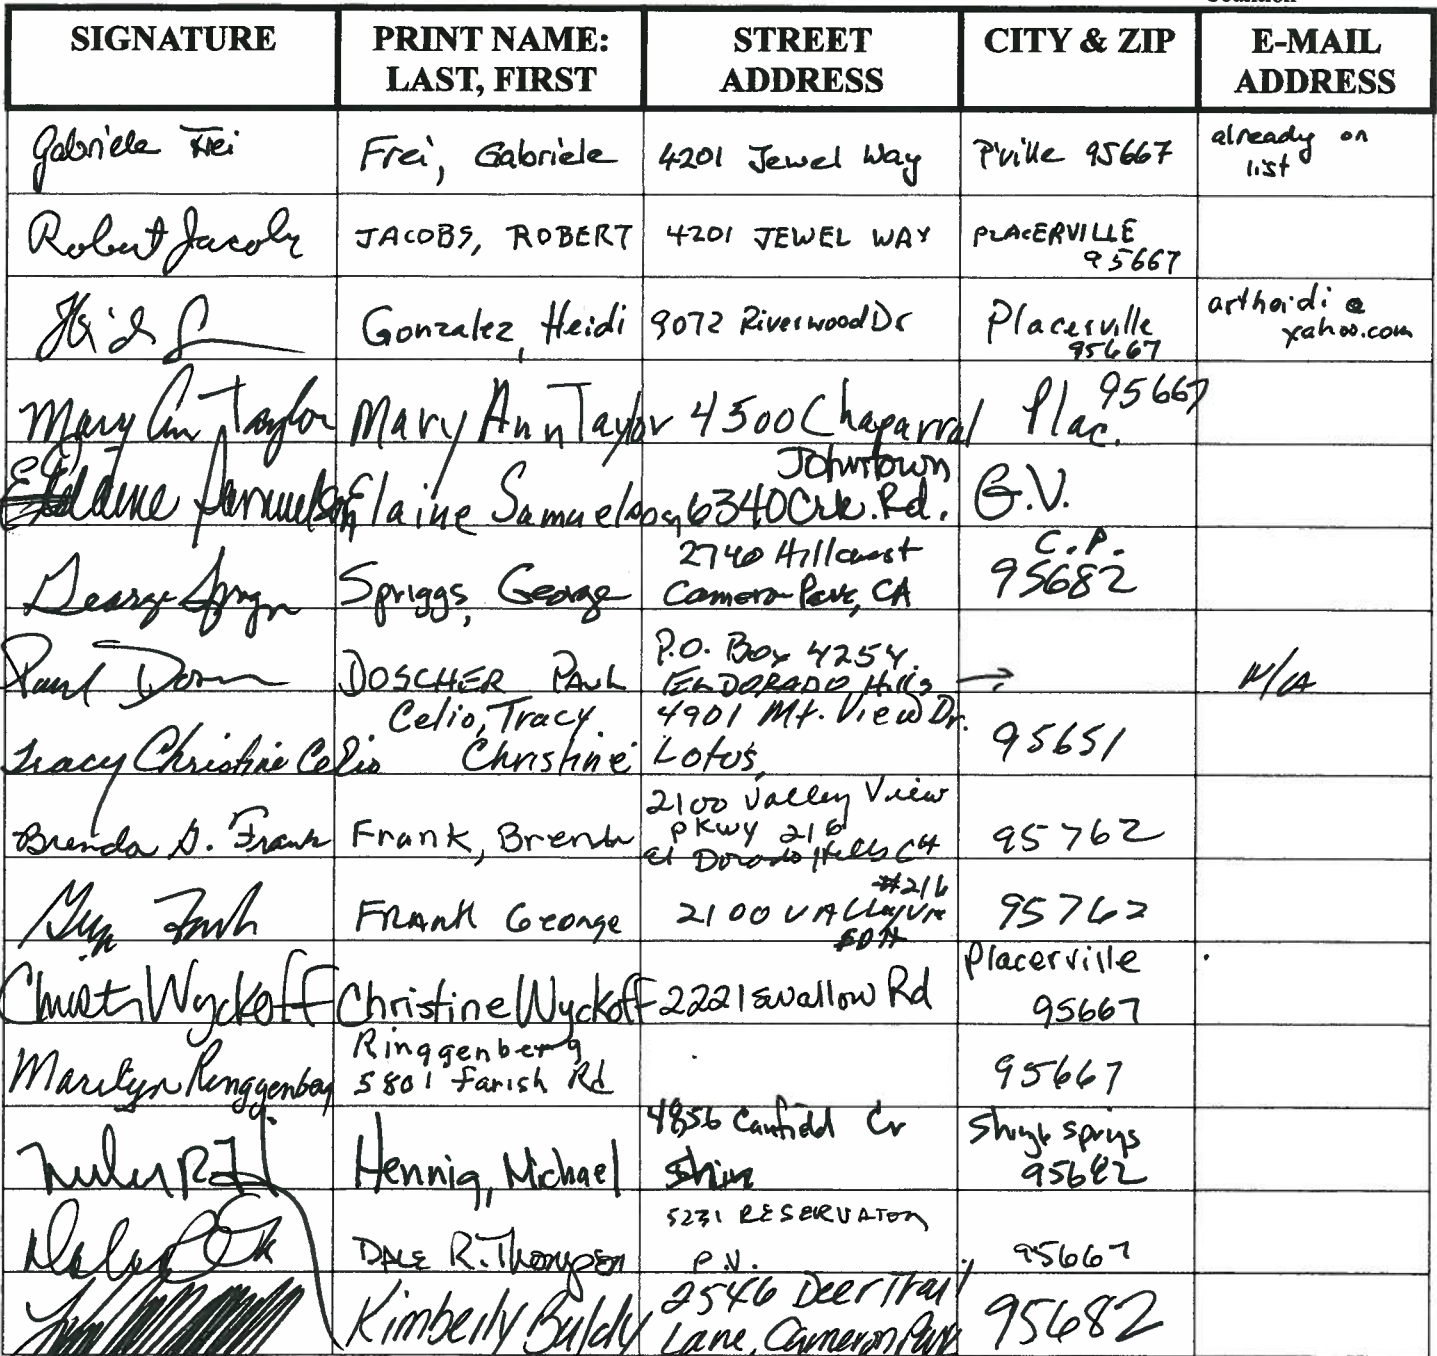 SIGNATURE PRINT NAME: LAST, FIRST STREET ADDRESS CITY & ZIP E-MAIL ADDRESS
Gabriele Frei Frei, Gabriele 4201 Jewel Way P'ville 95667 already on list
Robert Jacobs JACOBS, ROBERT 4201 JEWEL WAY PLACERVILLE 95667
Gonzalez, Heidi 9072 Riverwood Dr Placerville 95667 artheidi@yahoo.com
Mary Ann Taylor Mary Ann Taylor 4500 Chaparral Plac. 95667
Elaine Samuelson Elaine Samuelson 6340 Johntown Crk. Rd. G.V.
George Spriggs Spriggs, George 2740 Hillcrest Cameron Park, CA C.P. 95682
Paul DOSCHER PAUL P.O. Box 4254 EL DORADO Hills → N/A
Tracy Christine Celio Celio, Tracy Christine 4901 Mt. View Dr. Lotus, 95651
Brenda G. Frank Frank, Brenda 2100 Valley View Pkwy 216 El Dorado Hills CA 95762
FRANK George 2100 Valley View #216 EDH 95762
Christine Wyckoff Christine Wyckoff 2221 Swallow Rd Placerville 95667
Marilyn Ringgenberg Ringgenberg 5801 Farish Rd 95667
Hennig, Michael 4856 Canfield Cr Shin Shingle Springs 95682
DALE R. Thompson 5231 RESERVATON P.V. 95667
Kimberly Buldy 2546 Deer Trail Lane, Cameron Park 95682